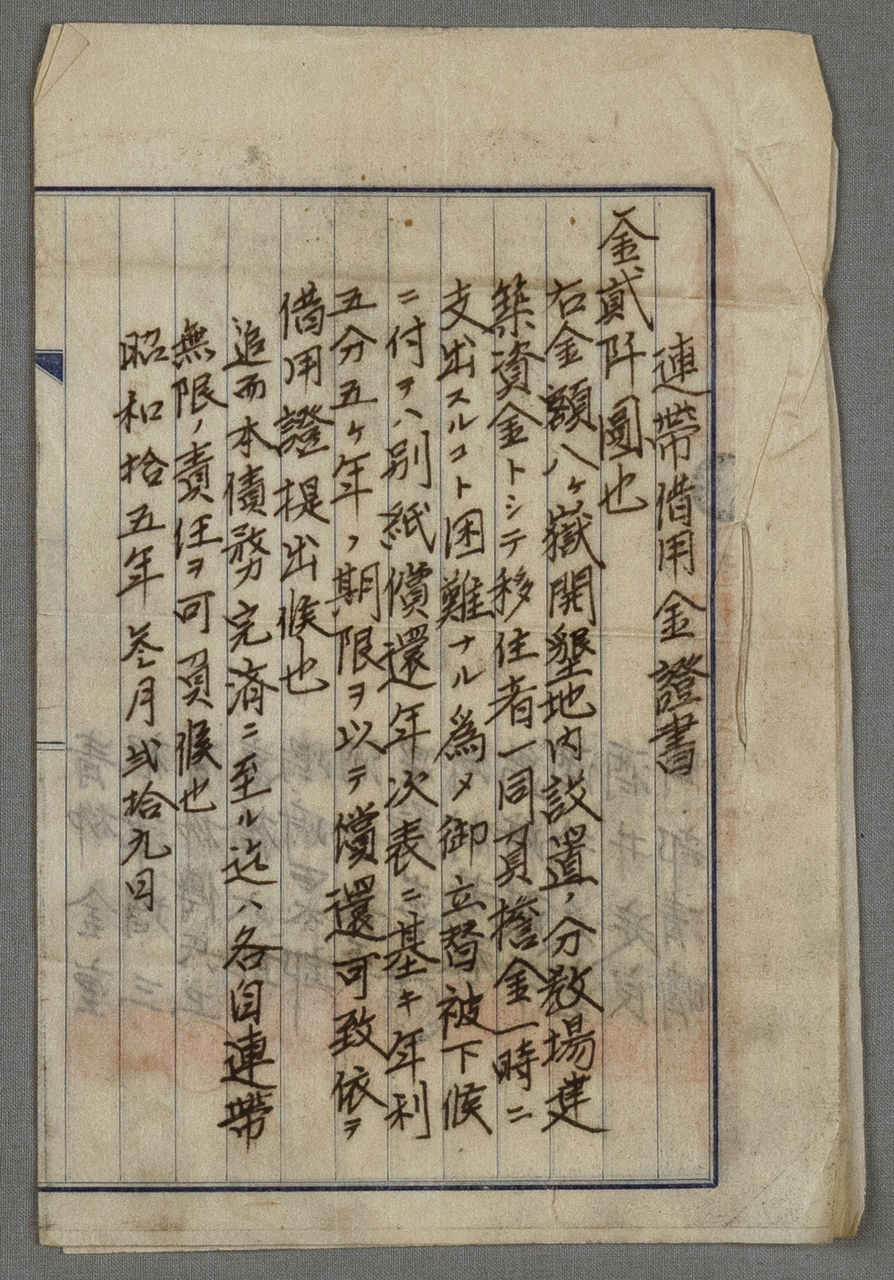 連帶借用金證書
一金貳阡圓也
右金額八ヶ嶽開墾地内設置ノ分教場建
築資金トシテ移住者一同負擔金一時ニ
支出スルコト困難ナル為メ御立替被下候
ニ付テハ別紙償還年次表ニ基キ年利
五分五ヶ年ノ期限ヲ以テ償還可致依テ
借用證提出候也
追而本債務完済ニ至ル迄ハ各自連帶
無限ノ責任ヲ可負候也
昭和拾五年參月貳拾九日